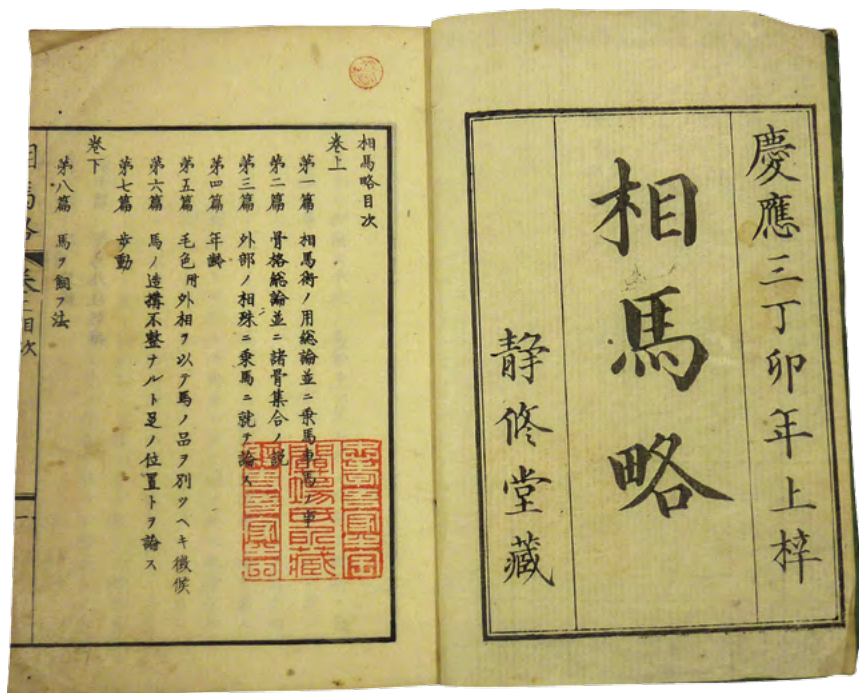 慶應三丁卯年上梓
相馬略
静修堂藏
相馬略目次
卷上
第一篇 相馬術ノ用総論並ニ乗馬車馬ノ事
第二篇 骨格総論並ニ諸骨集合ノ説
第三篇 外部ノ相殊ニ乗馬ニ就テ論ス
第四篇 年齢
第五篇 毛色附外相ヲ以テ馬ノ品ヲ別ツヘキ徴候
第六篇 馬ノ造搆不整ナルト足ノ位置トヲ論ス
第七篇 歩動
卷下
第八篇 馬ヲ飼フ法
相馬略 卷上目次